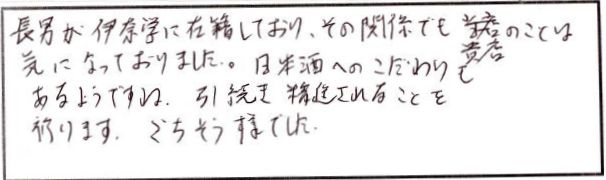 長男が伊奈学に在籍しており、その関係でも貴店のことは
気になっておりました。日本酒へのこだわりも
あるようですね。引続き精進されることを
祈ります。ごちそう様でした。